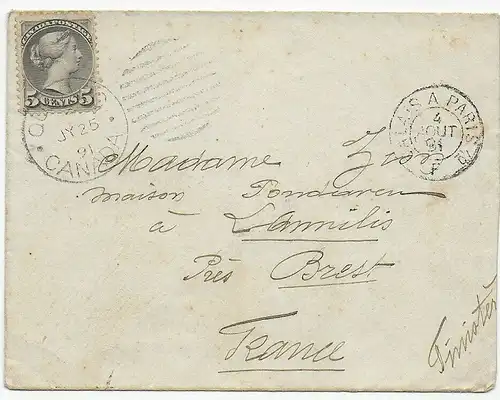 CANADA POSTAGE
5 CENTS 5
JY 25
91
CANADA
CALAIS A PARIS
4
AOUT
91
Madame
Maison
à Lannilis
Près Brest
France
Finistère